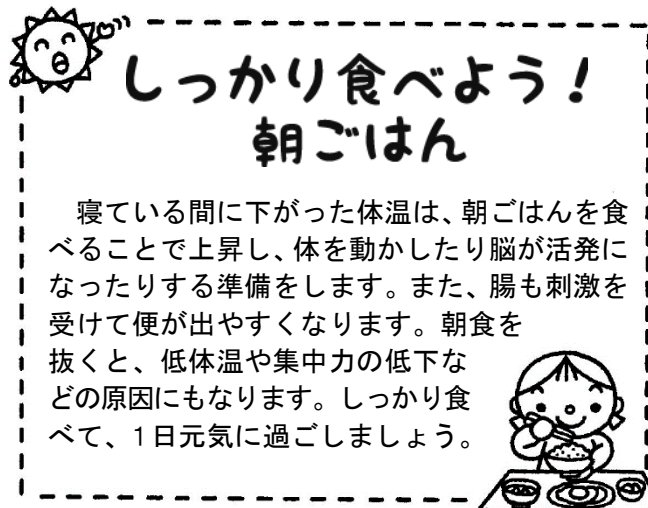 しっかり食べよう！
朝ごはん
　寝ている間に下がった体温は、朝ごはんを食
べることで上昇し、体を動かしたり脳が活発に
なったりする準備をします。また、腸も刺激を
受けて便が出やすくなります。朝食を
抜くと、低体温や集中力の低下な
どの原因にもなります。しっかり食
べて、1日元気に過ごしましょう。